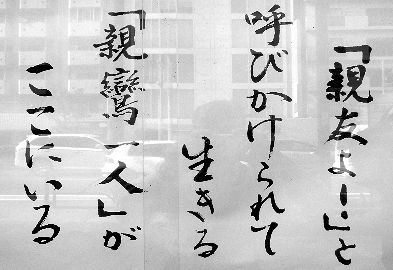 「親友よー」と
呼びかけられて
生きる
「親鸞一人」が
ここにいる